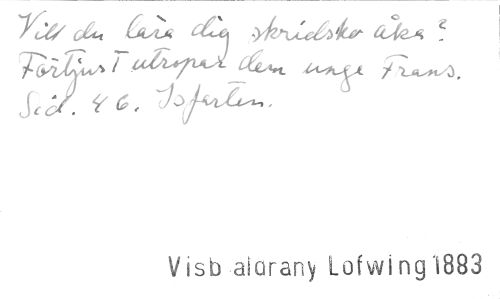 Vill du lära dig skridsko åka?
Förtjust utropar den unge Frans.
Sid. 46. Isfarten.
Visb aldrany Lofwing 1883